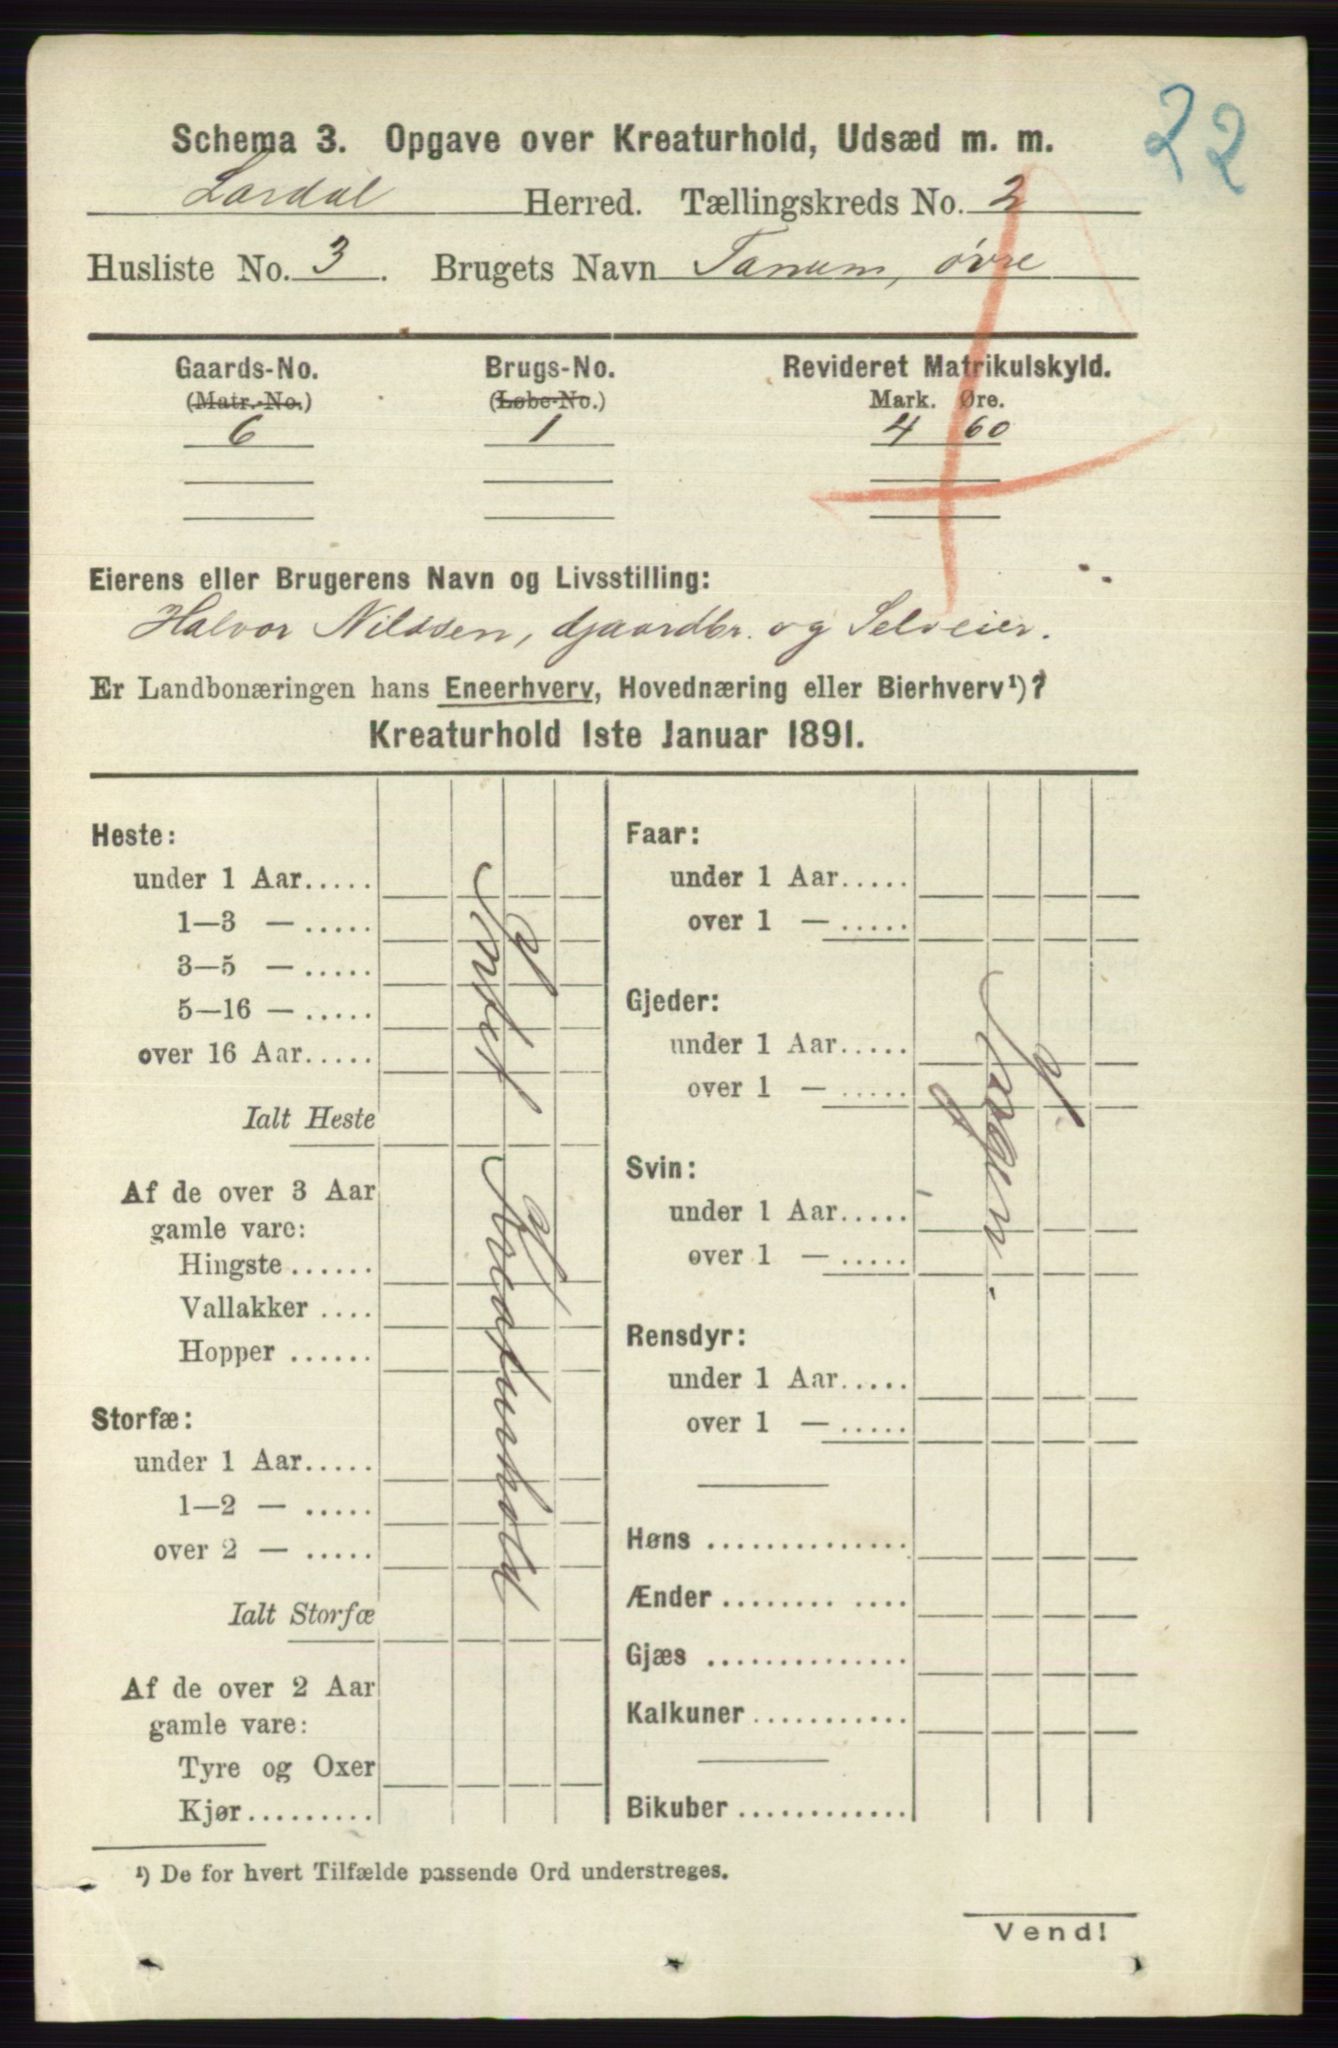 22
Schema 3. Opgave over Kreaturhold, Udsæd m. m.
Lardal Herred. Tællingskreds No. 2
Husliste No. 3. Brugets Navn Tanum, øvre
Gaards-No. Brugs-No. Revideret Matrikulskyld.
(Matr.-No.) (Løbe-No.) Mark. Øre.
6 1 4 60
Eierens eller Brugerens Navn og Livsstilling:
Halvor Nilssen, Gaardbr. og Selveier.
Er Landbonæringen hans Eneerhverv, Hovednæring eller Bierhverv¹)?
Kreaturhold 1ste Januar 1891.
Heste:
under 1 Aar.....
1—3 — .....
3—5 — .....
5—16 — .....
over 16 Aar.....
Ialt Heste
Af de over 3 Aar
gamle vare:
Hingste ......
Vallakker ....
Hopper ......
Storfæ:
under 1 Aar.....
1—2 — .....
over 2 — .....
Ialt Storfæ
Af de over 2 Aar
gamle vare:
Tyre og Oxer
Kjør.........
Kreaturhold
Faar:
under 1 Aar.....
over 1 — .....
Gjeder:
under 1 Aar.....
over 1 — .....
Svin:
under 1 Aar.....
over 1 — .....
Rensdyr:
under 1 Aar.....
over 1 — .....
Høns ..............
Ænder ........ ....
Gjæs ..............
Kalkuner...........
Bikuber ............
Ingen.
¹) De for hvert Tilfælde passende Ord understreges.
Vend!